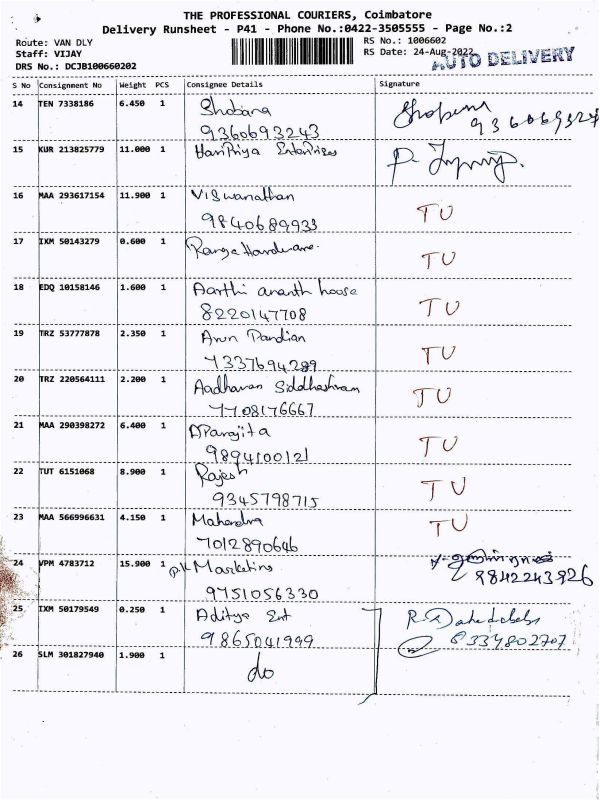 THE PROFESSIONAL COURIERS, Coimbatore
Delivery Runsheet - P41 - Phone No.:0422-3505555 - Page No.:2
Route: VAN DLY RS No.: 1006602
Staff: VIJAY RS Date: 24-Aug-2022
DRS No.: DCJB100660202 AUTO DELIVERY
S No Consignment No Weight PCS Consignee Details Signature
14 TEN 7338186 6.450 1 Shobana
9360693243 9360693243
15 KUR 213825779 11.000 1 HariPriya EnterPrises
16 MAA 293617154 11.900 1 Viswanathan
9840689933 TU
17 IXM 50143279 0.600 1 Ranga Hardware.
TU
18 EDQ 10158146 1.600 1 Aarthi ananth house
8220147708 TU
19 TRZ 53777878 2.350 1 Arun Pandian
7337694289 TU
20 TRZ 220564111 2.200 1 Aadhavan
7708176667 TU
21 MAA 290398272 6.400 1 APorajita
9894100121 TU
22 TUT 6151068 8.900 1 Rajesh
9345798715 TU
23 MAA 566996631 4.150 1 Mahendra
7012890646 TU
24 VPM 4783712 15.900 1 P.K Marketing
9751056330 9842243926
25 IXM 50179549 0.250 1 Aditya Ent
9865041999 8334802707
26 SLM 301827940 1.900 1 do